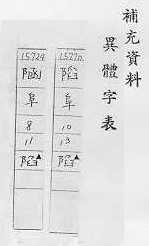 補充資料
異體字表
阜
10
13
陷▲
15724
阜
8
11
陷▲